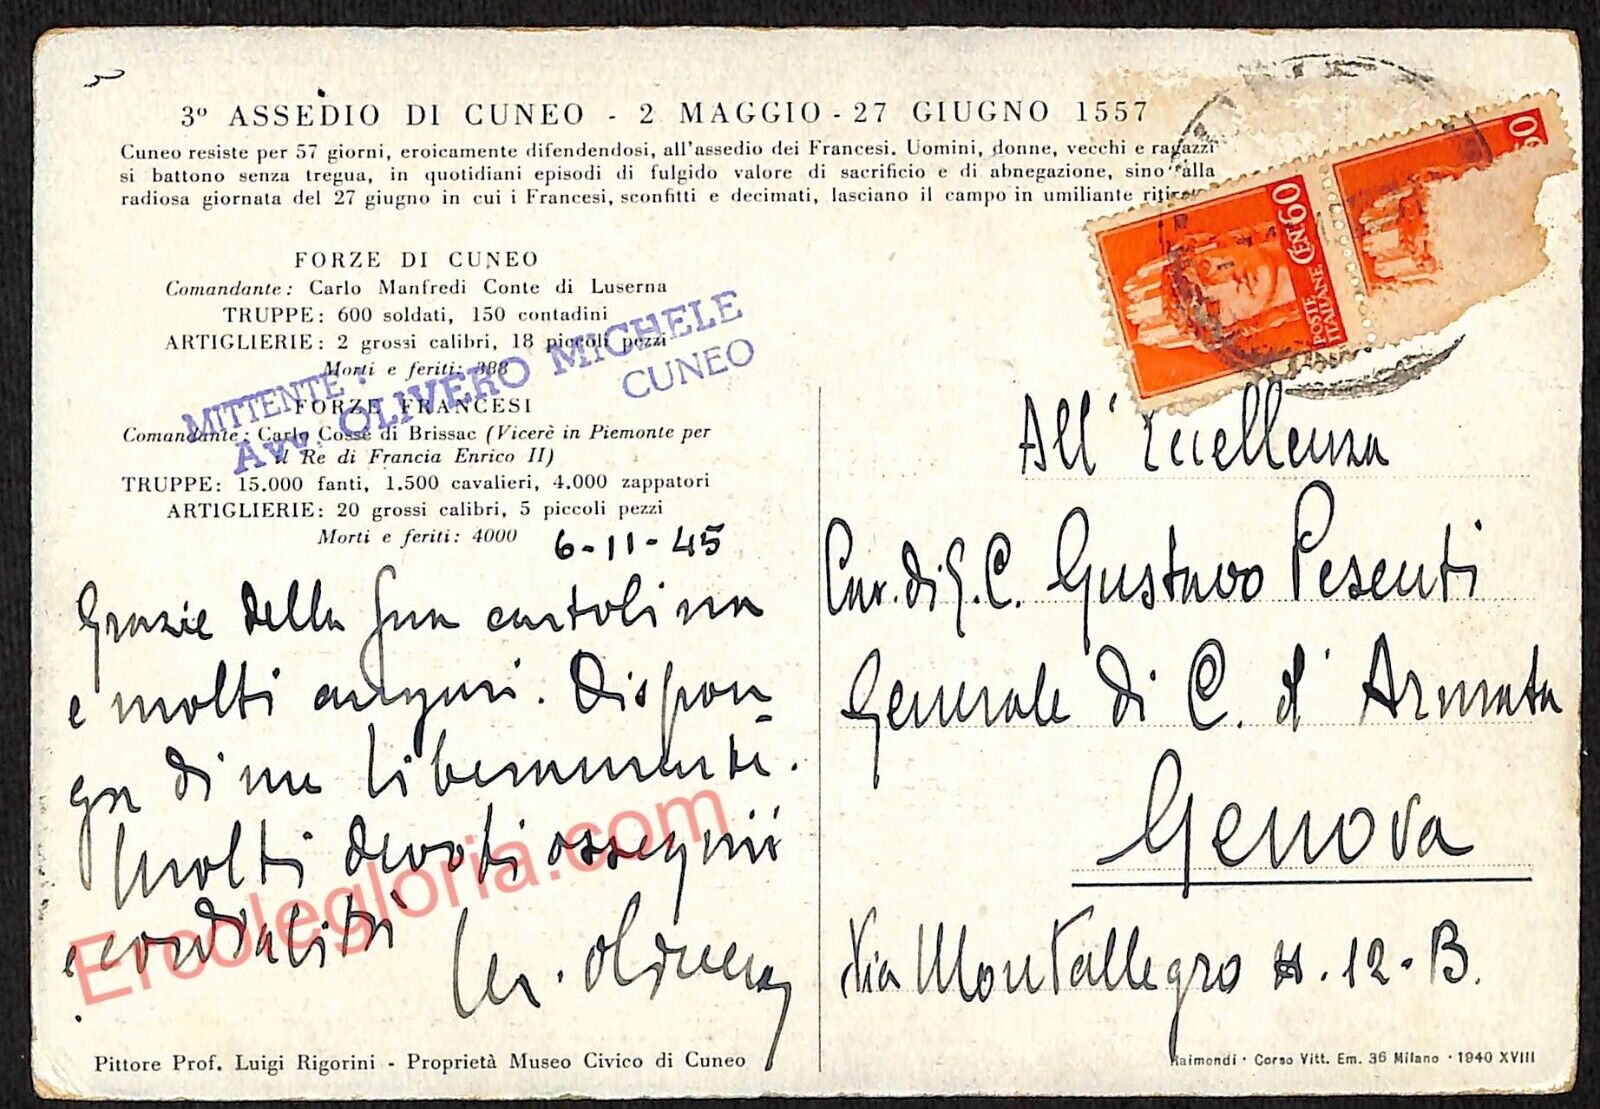 3º ASSEDIO DI CUNEO - 2 MAGGIO - 27 GIUGNO 1557
Cuneo resiste per 57 giorni, eroicamente difendendosi, all'assedio dei Francesi. Uomini, donne, vecchi e ragazzi
si battono senza tregua, in quotidiani episodi di fulgido valore di sacrificio e di abnegazione, sino alla
radiosa giornata del 27 giugno in cui i Francesi, sconfitti e decimati, lasciano il campo in umiliante
FORZE DI CUNEO
Comandante: Carlo Manfredi Conte di Luserna
TRUPPE: 600 soldati, 150 contadini
ARTIGLIERIE: 2 grossi calibri, 18 piccoli pezzi
Morti e feriti: 388
FORZE FRANCESI
Comandante: Carlo Cossé di Brissac (Vicerè in Piemonte per
il Re di Francia Enrico II)
TRUPPE: 15.000 fanti, 1.500 cavalieri, 4.000 zappatori
ARTIGLIERIE: 20 grossi calibri, 5 piccoli pezzi
Morti e feriti: 4000
MITTENTE:
Avv. OLIVERO MICHELE
CUNEO
6-11-45
Grazie della Sua cartolina
e molti auguri. Dispon-
ga di me liberamente.
Molti devoti ossequii
e cordialità
M. Olivero
POSTE
ITALIANE CEN. 60
60
All'Eccellenza
Cav. di G. C. Gustavo Pesenti
Generale di C. d'Armata
Genova
Via MonTallegro N. 12-B.
Pittore Prof. Luigi Rigorini - Proprietà Museo Civico di Cuneo
Raimondi · Corso Vitt. Em. 36 Milano · 1940 XVIII
Ercolegloria.com